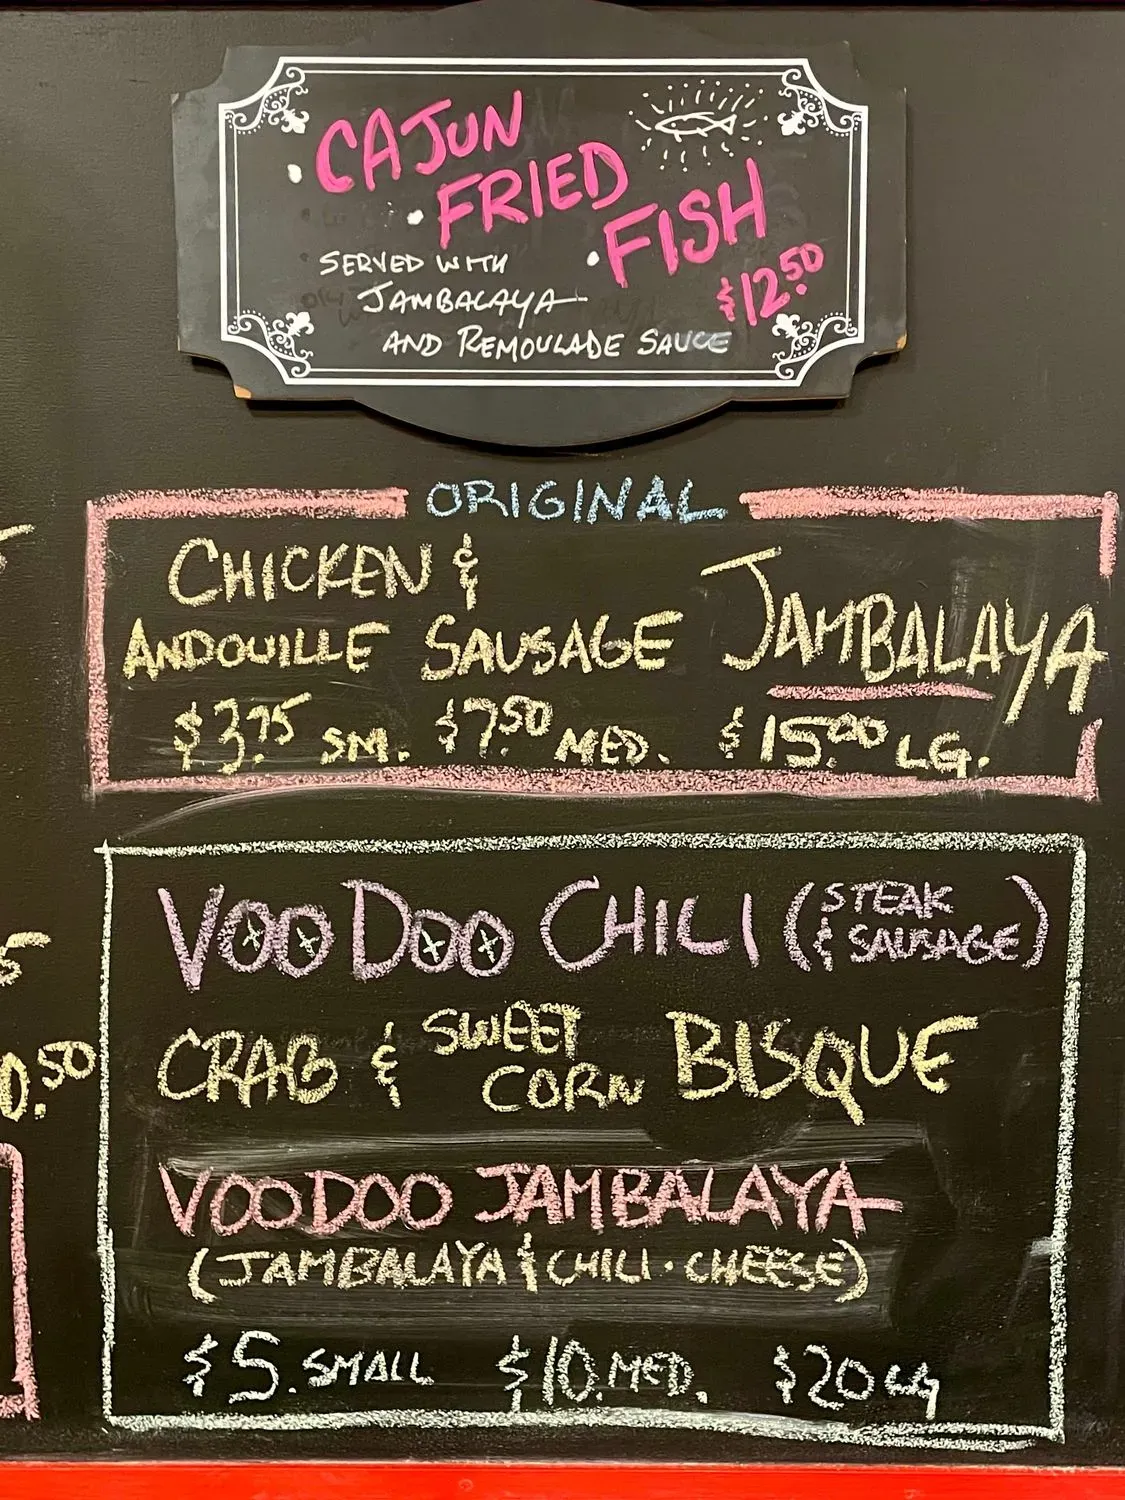 CAJUN
FRIED
FISH
$12.50
SERVED WITH
JAMBALAYA
AND REMOULADE SAUCE
ORIGINAL
CHICKEN &
ANDOUILLE SAUSAGE JAMBALAYA
$3.75 SM. $7.50 MED. $15.00 LG.
VOODOO CHILI (STEAK
& SAUSAGE)
CRAB & SWEET
CORN BISQUE
0.50
VOODOO JAMBALAYA
(JAMBALAYA & CHILI · CHEESE)
$5. SMALL $10. MED. $20 LG